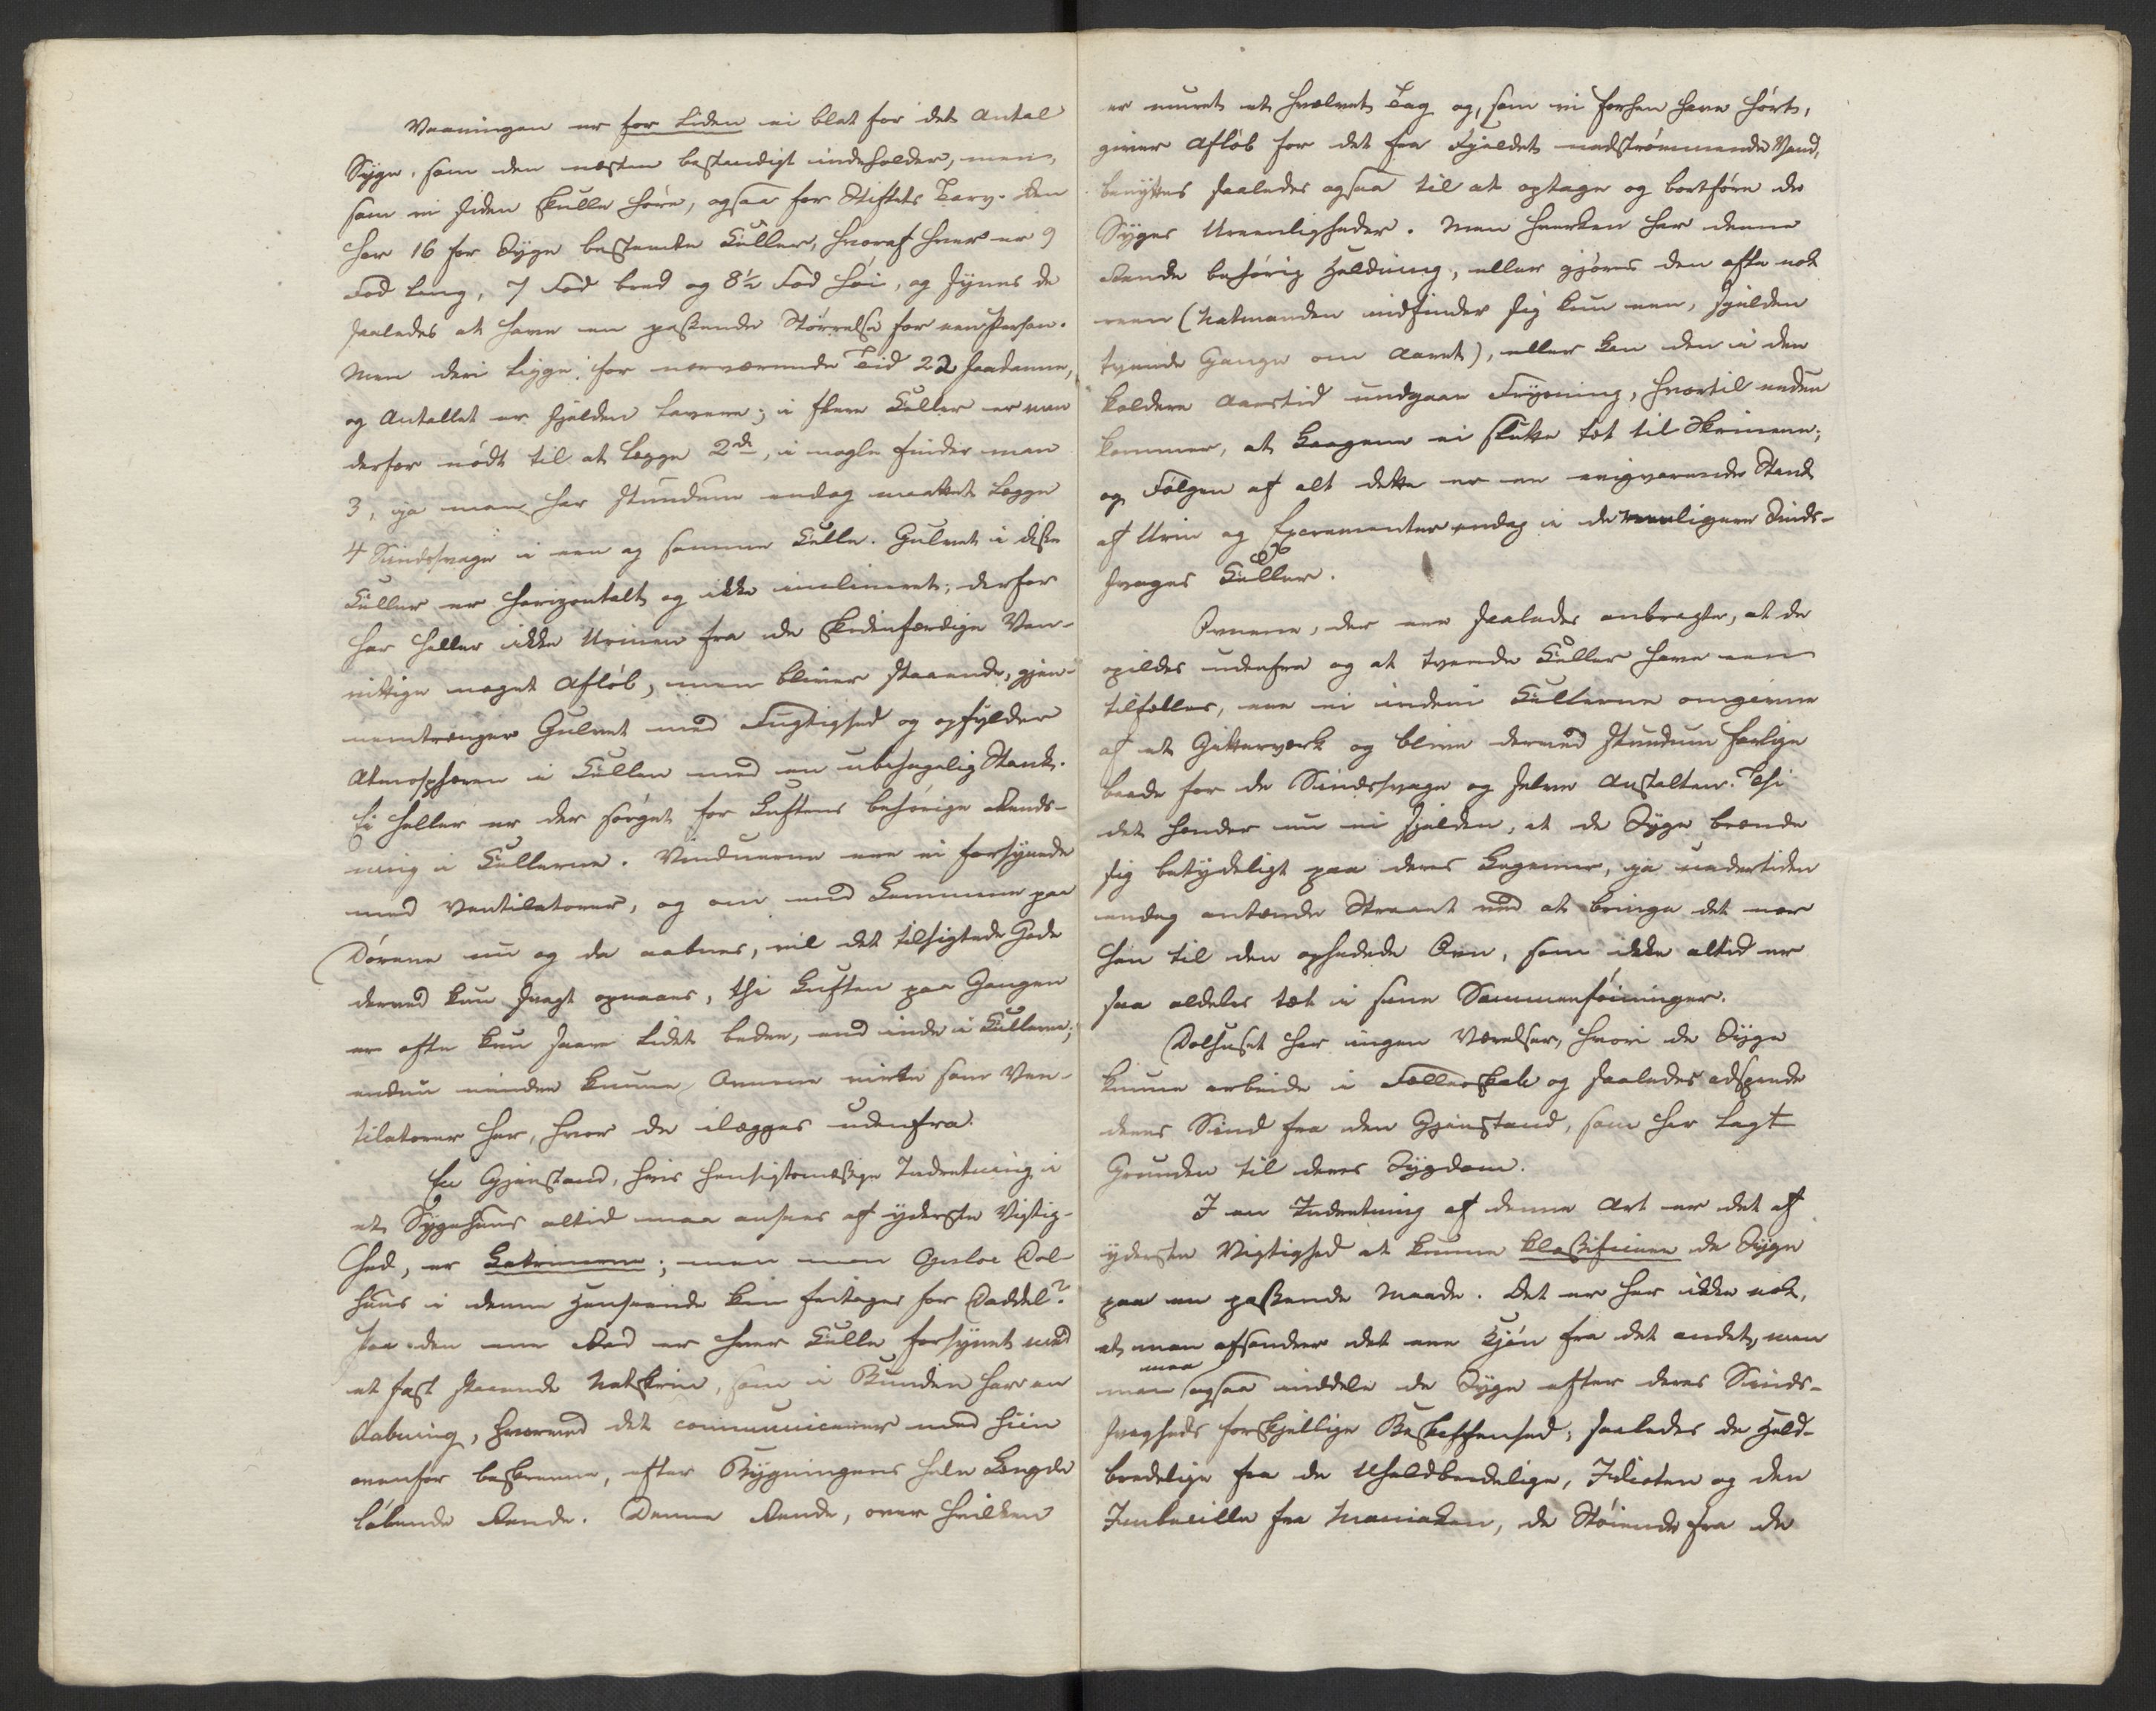 Vaaningen er for liden ei blot for det Antal
Syge, som den næsten bestandigt indeholder, men,
som vi siden skulle høre, ogsaa for Stiftets Tarv. Den
har 16 for Syge bestemte Celler, hvoraf hver er 9
Fod lang, 7 Fod bred og 8½ Fod høi, og synes de
saaledes at have en passende Størrelse for een Person.
Men deri ligge for nærværende Tid 22 saadanne,
og Antallet er sjelden lavere; i flere Celler er man
derfor nødt til at lægge 2de, i nogle finder man
3, ja man har stundum endog maattet lægge
4 Sindssvage i een og samme Celle. Gulvet i disse
Celler er horizontalt og ikke inclineret; derfor
har heller ikke Urinen fra de skidenfærdige Van-
vittige noget Afløb, men bliver staaende, gjen-
nemtrænger Gulvet med Fugtighed og opfylder
Atmosphæren i Cellen med en ubehagelig Stank.
Ei heller er der sørget for Luftens behørige Rends-
ning i Cellerne. Vinduerne ere ei forsynede
med Ventilatorer, og om end Lemmene paa
Dørene nu og da aabnes, vil det tilsigtede Gode
derved kun svagt opnaaes, thi Luften paa Gangen
er ofte kun saare lidet bedre, end inde i Cellerne;
endnu mindre kunne Ovnene virke som Ven-
tilatorer her, hvor de ilægges udenfra.
En Gjenstand, hvis hensigtsmæssige Indretning i
et Sygehuus altid maa ansees af yderste Vigtig-
hed, er Latrinerne; men mon Opsloe Dol-
huus i denne Henseende kan fritages for Daddel?
Paa den ene Rad er hver Celle forsynet med
et fast staaende Natskrin, som i Bunden har en
Aabning, hvorved det communicerer med hiin
ovenfor beskrevne, efter Bygningens hele Længde
løbende Rende. Denne Rende, over hvilken
er muret et hvælvet Tag og, som vi forhen have hørt,
giver Afløb for det fra Fjeldet nedstrømmende Vand,
benyttes saaledes ogsaa til at optage og bortføre de
Syges Ureenligheder. Men hverken har denne
Rende behørig Heldning, eller gjøres den ofte nok
reen (Natmanden indfinder sig kun een, sjelden
tvende Gange om Aaret), eller kan den i den
koldere Aarstid undgaae Frysning, hvortil endnu
kommer, at Laagene ei slutte tæt til Skrinene;
og Følgen af alt dette er en evigvarende Stank
af Urin og Excrementer endog i de reenligere Sinds-
svages Celler.
Ovnene, der ere saaledes anbragte, at de
opildes udenfra og at tvende Celler have een
tilfælles, ere ei inden i Cellerne omgivne
af et Gitterværk og blive derved stundum farlige
baade for de Sindssvage og selve Anstalten. Thi
det hænder nu ei sjelden, at de Syge brænde
sig betydeligt paa deres Legemer, ja undertiden
endog antænde Straaet ved at bringe det nær
hen til den ophedede Ovn, som ikke altid er
saa aldeles tæt i sine Sammenføininger.
Dolhuset har ingen Værelser, hvori de Syge
kunne arbeide i Fællesskab og saaledes adsprede
deres Sind fra den Gjenstand, som har lagt
Grunden til deres Sygdom.
I en Indretning af denne Art er det af
yderste Vigtighed at kunne klassificere de Syge
paa en passende Maade. Det er her ikke nok,
at man afsondrer det ene Kjøn fra det andet, men
maa
man ogsaa inddele de Syge efter deres Sinds-
svagheds forskjellige Beskaffenhed; saaledes de Held-
bredelige fra de Uheldbredelige, Idioten og den
Imbecille fra Maniaken, de Støiende fra de